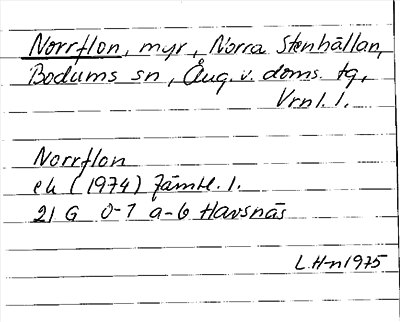 Norrflon, myr, Norra Stenhällan,
Bodums sn, Ång. v. doms. tg,
Vrnl. l.
Norrflon
ek (1974) Jämtl. l.
21 G 0-1 a-b Havsnäs
L.H-n 1975